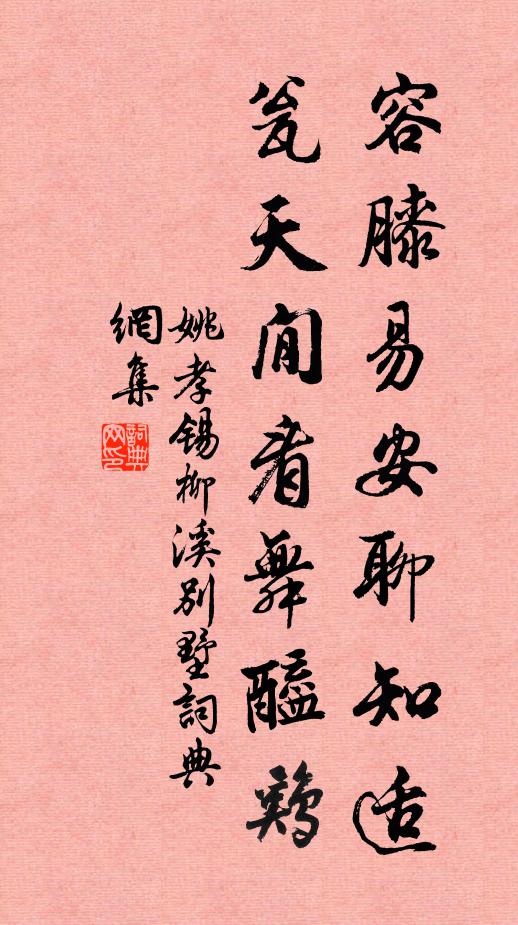 容膝易安聊知适
瓮天閒看舞醯鸡
姚孝锡柳溪别墅詞典
網集
詞典网印